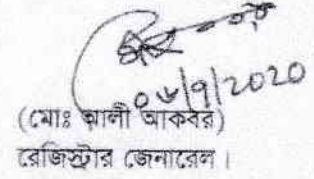 ০৮/9/2020
(মোঃ আলী আকবর)
রেজিস্ট্রার জেনারেল।